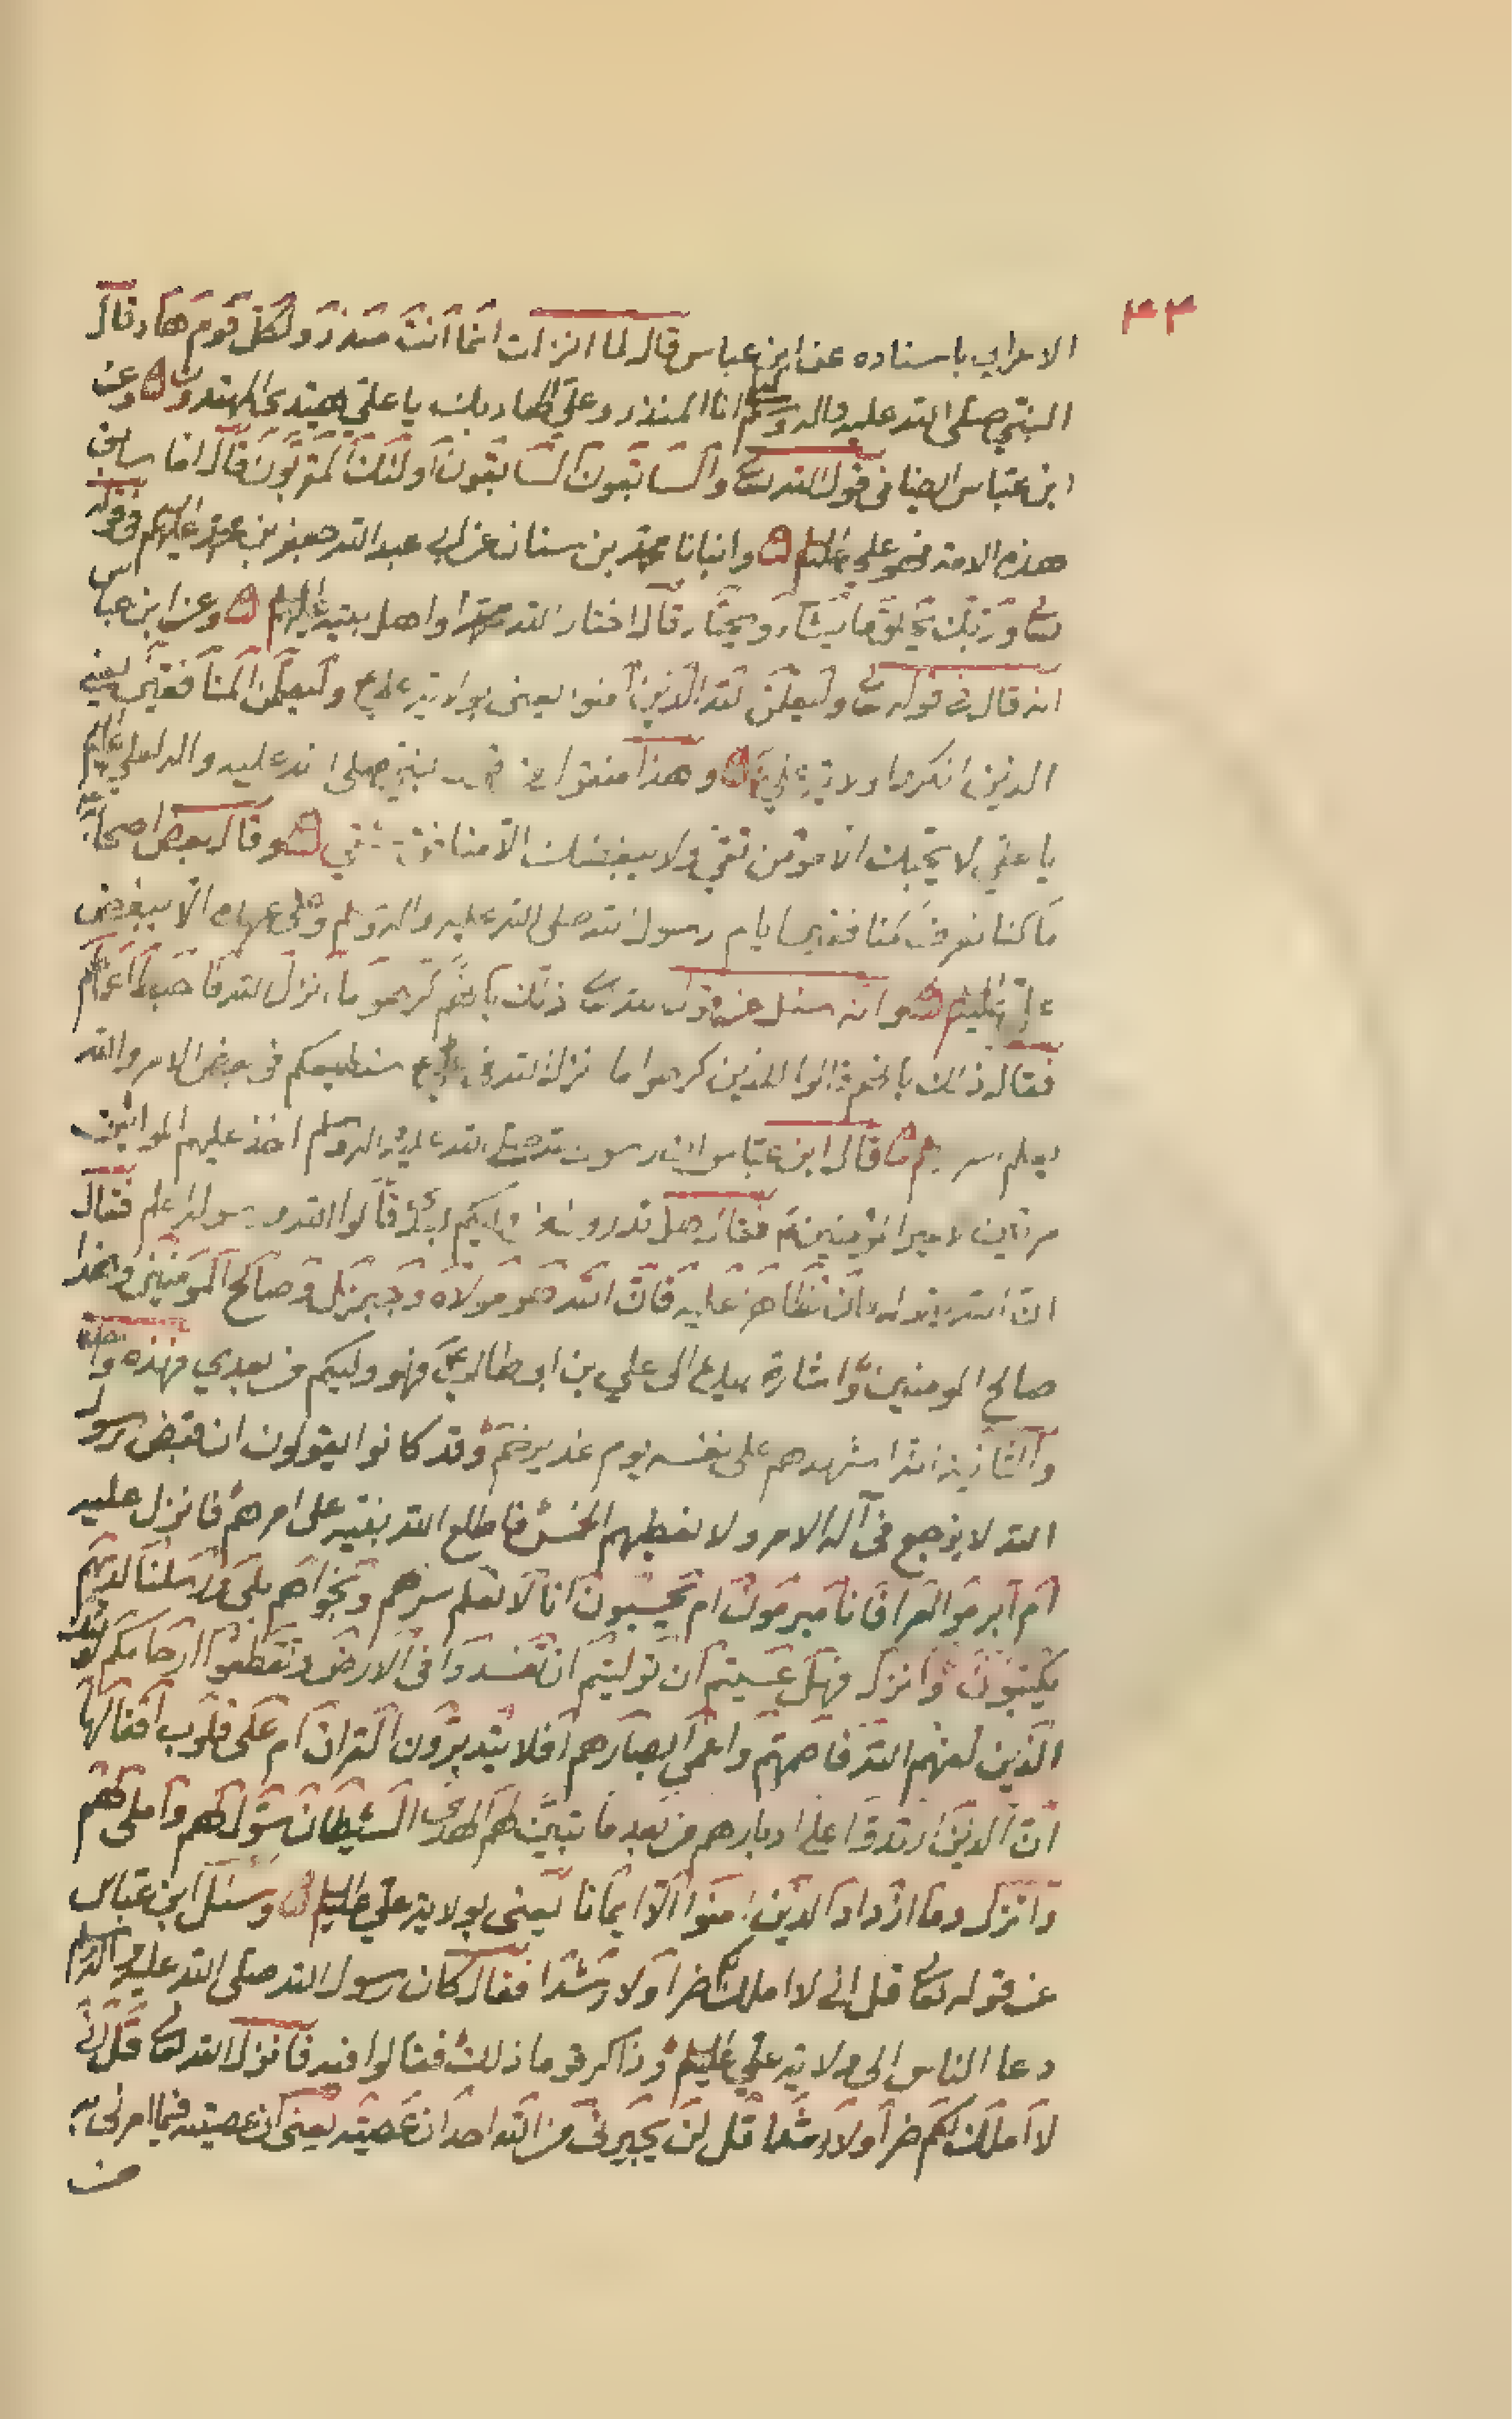 ٤٣
الاعرابي باسناده عن ابن عباس قال لما انزلت انما انت منذر ولكل قوم هاد قال
النبي صلى الله عليه واله وسلم انا المنذر وعلي الهاد بك يا علي يهتدي المهتدون وعن
ابن عباس ايضا في قول الله تعا والسابقون السابقون اولئك المقربون قال انا سابق
هذه الامة فهو علي عليلم وانبانا محمد بن سنان عن ابي عبد الله جعفر بن محمد عليهم في قوله
تعا وربك يخلق ما يشاء ويختار قال اختار الله محمدا واهل بيته عليهم وعن ابن عباس
انه قال في قوله تعا وليعلمن الله الذين آمنوا يعنى بولاية علي ع وليعلمن المنافقين يعني
الذين انكروا ولاية علي وهذا من النبي صلى الله عليه واله لعلي
يا علي لا يحبك الا مؤمن تقي ولا يبغضك الا منافق شقي وقال بعض اصحابه
ما كنا نعرف منافقينا ايام رسول الله صلى الله عليه واله وسلم وعلى عهده الا ببغض
علي عليلم وانه سئل عن قول الله تعا ذلك بانهم كرهوا ما انزل الله فاحبط اعمالهم
فقال ذلك بانهم قالوا للذين كرهوا ما نزل الله في علي ع سنطيعكم في بعض الامر والله
يعلم اسرارهم قال ابن عباس ان رسول الله صلى الله عليه واله وسلم اخذ عليهم المواثيق
مرتين لامير المؤمنين فقال هل تدرون من وليكم بعدي قالوا الله ورسوله اعلم فقال
ان الله يقول وان تظاهرا عليه فان الله هو مولاه وجبريل وصالح المؤمنين وهذا
صالح المومنين واشارة بيده الى علي بن ابي طالب فهو وليكم من بعدي فهذه واحدة
والثانية اشهدهم على نفسه يوم غدير خم وقد كانوا يقولون ان قبض رسول
الله لا يرجع في آله الامر ولا نعطيهم الخمس فاطلع الله نبيه على امرهم فانزل عليه
ام ابرموا امرا فانا مبرمون ام يحسبون انا لا نعلم سرهم ونجواهم بلى ورسلنا لديهم
يكتبون وانزل فهل عسيتم ان توليتم ان تفسدوا في الارض وتقطعوا ارحامكم اولئك
الذين لعنهم الله فاصمهم واعمى ابصارهم افلا يتدبرون القران ام على قلوب اقفالها
ان الذين ارتدوا على ادبارهم من بعد ما تبين لهم الهدى الشيطان سول لهم واملى لهم
وانزل وما ازداد الذين امنوا الا ايمانا يعنى بولاية علي عليلم وسئل ابن عباس
عن قوله تعا قل اني لا املك لكم ضرا ولا رشدا فقال كان رسول الله صلى الله عليه واله وسلم
دعا الناس الى ولاية علي عليلم وذاكر قوما ذلك فقالوا فيه فانزل الله تعا قل اني
لا املك لكم ضرا ولا رشدا قل لن يجيرنى من الله احد ان عصيته يعنى ان عصيته فيما امرنى به
من